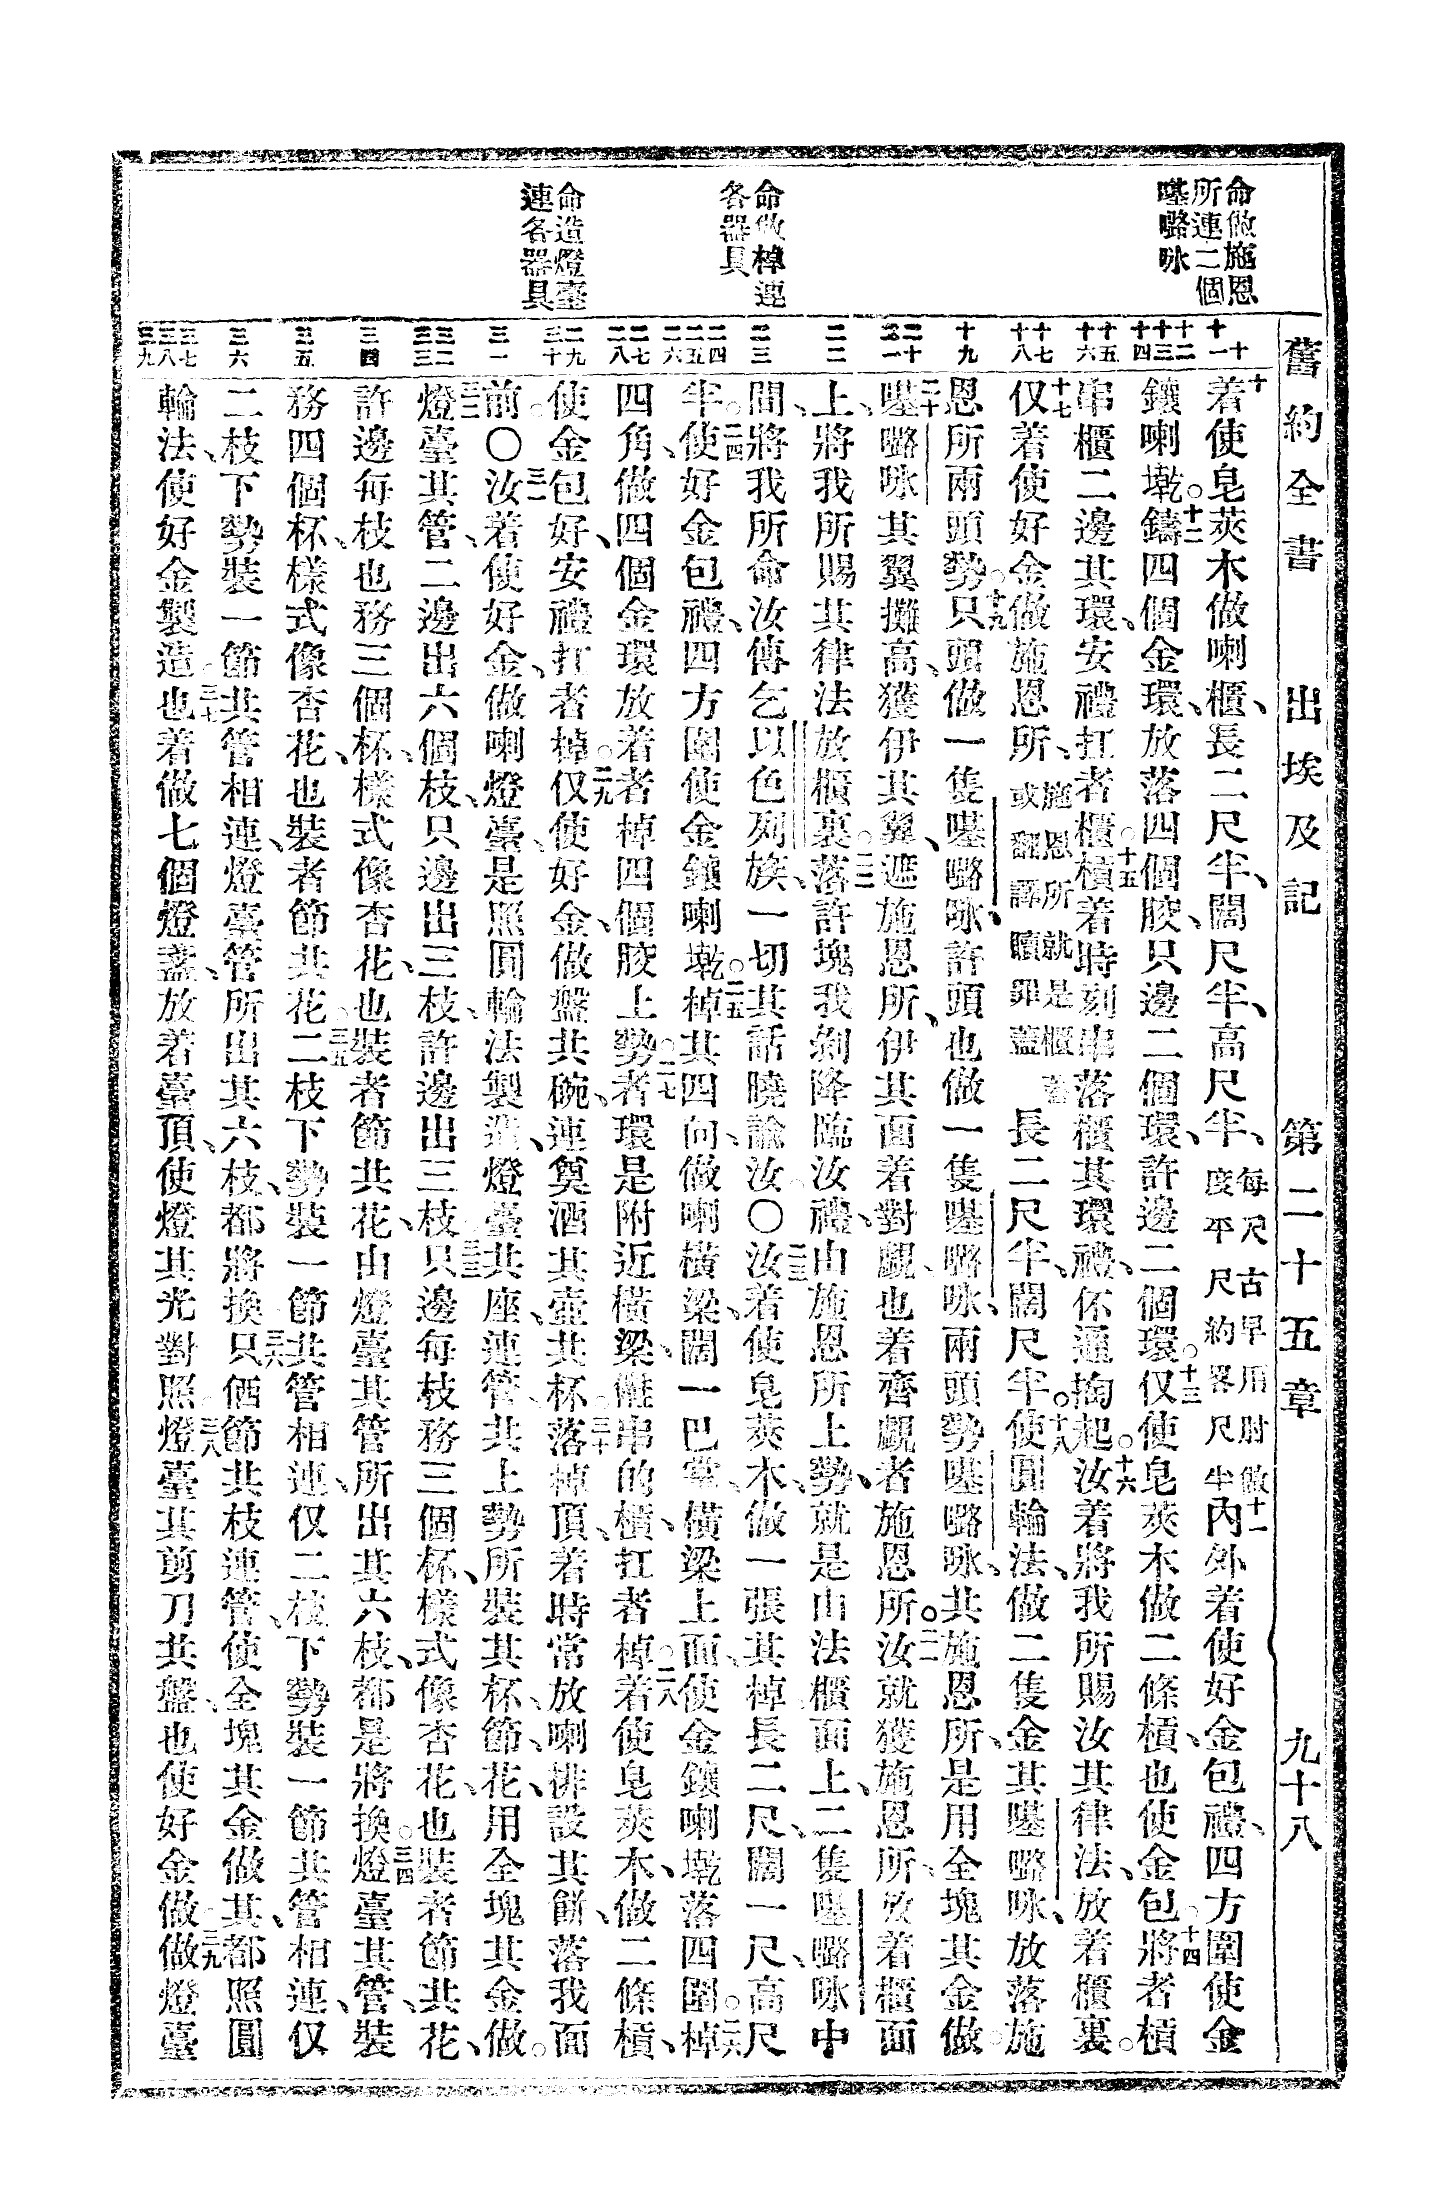 舊約全書　出埃及記　第二十五章　九十八
命做施恩
所連二個
𠸄嚕咏
命做棹連
各器具
命造燈臺
連各器具
十着使皂莢木做喇櫃、長二尺半、闊尺半、高尺半、每尺古早用肘做度平尺約畧尺半十一內外着使好金包禮、四方圍使金
鑲喇墘。十二鑄四個金環、放落四個骹、只邊二個環、許邊二個環。十三仅使皂莢木做二條槓、也使金包。十四將者槓
串櫃二邊其環、安禮扛者櫃。十五槓着時刻串落櫃其環禮、伓通掏起。十六汝着將我所賜汝其律法、放着櫃裏。
十七仅着使好金做施恩所、施恩所就是櫃蓋或翻譯贖罪蓋長二尺半、闊尺半。十八使圓輪法、做二隻金其𠸄嚕咏、放落施
恩所兩頭勢。十九只頭做一隻𠸄嚕咏、許頭也做一隻𠸄嚕咏、兩頭勢𠸄嚕咏、共施恩所、是用全塊其金做。
二十𠸄嚕咏其翼攤高、獲伊其翼、遮施恩所、伊其面着對覷、也着齊覷者施恩所。二一汝就獲施恩所、放着櫃面
上、將我所賜其律法放櫃裏。二二落許塊我剃降臨汝禮、由施恩所上勢、就是由法櫃面上、二隻𠸄嚕咏中
間、將我所命汝傳乞以色列族、一切其話曉諭汝。〇二三汝着使皂莢木、做一張其棹、長二尺、闊一尺、高尺
半。二四使好金包禮、四方圍使金鑲喇墘。二五棹其四向、做喇橫梁、闊一巴掌、橫梁上面、使金鑲喇墘落四圍。二六棹
四角、做四個金環、放着者棹四個骹上勢。二七者環是附近橫梁、㒰串的槓、扛者棹。二八着使皂莢木、做二條槓、
使金包好、安禮扛者棹。二九仅使好金、做盤共碗、連奠酒其壺共杯。三十落棹頂、着時常放喇排設其餅、落我面
前。〇三一汝着使好金、做喇燈臺、是照圓輪法製造、燈臺共座、連管、共上勢所裝其杯、節、花、用全塊其金做。
三二燈臺其管、二邊出六個枝、只邊出三枝、許邊出三枝。三三只邊每枝務三個杯、樣式像杏花、也裝者節共花、
許邊每枝也務三個杯、樣式像杏花、也裝者節共花、由燈臺其管所出其六枝、都是將換。三四燈臺其管、裝
務四個杯、樣式像杏花、也裝者節共花。三五二枝下勢裝一節共管相連、仅二枝下勢裝一節共管相連、仅
二枝下勢裝一節共管相連、燈臺管所出其六枝、都將換。三六只㑚節共枝連管、使全塊其金做其、都照圓
輪法、使好金製造。三七也着做七個燈盞、放着臺頂、使燈其光對照。三八燈臺其剪刀共盤、也使好金做。三九做燈臺
十
十一
十二
十三
十四
十五
十六
十七
十八
十九
二十
二一
二二
二三
二四
二五
二六
二七
二八
二九
三十
三一
三二
三三
三四
三五
三六
三七
三八
三九